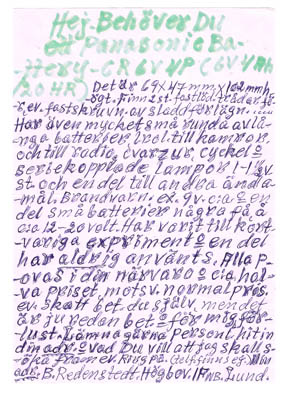 Hej. Behöver Du
ett Panasonic Ba-
ttery-CR6V4P (6V4Ah
/20HR) Det är 69x47mm x102mmh.
-gt. Finn 2st. fastlöd. trådar fö-
r, ev. fastskruvn. av sladd för lågn.
Har även mycket små runda avlå-
nga batterier, bl. till kameror.
och till radio, ovar z ur, cykel o
seriekopplade lampor 1-1½v
st och en del till andra ända-
mål. Brandvarn. ex. 9v. c:a o en
del små batterier några på, à
c:a 12-20 volt. Har varit till kort-
variga expriment o en del
har aldrig använts. Alla P-
rovas i din närvaro o c:a hal-
va priset, motsv. normalpris
ev. skatt bet. du själv, men det
är ju redan bet. o för mig för-
lust. Lämna gärna personl. hit in
din adr. o vad Du vill att jag skall s-
öka fram ev. Ring på. (telf. finns ej) Min
adr. B. Redenstedt. Högbov. 1F nB. Lund.